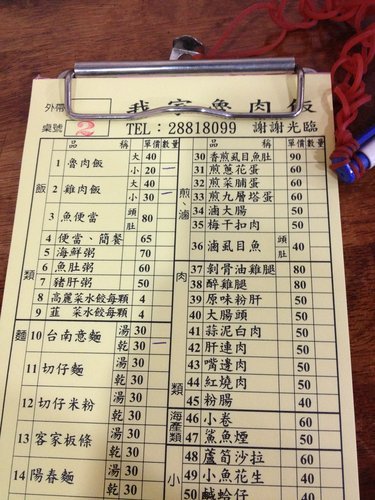 外帶
桌號 2
我家魯肉飯
TEL：28818099 謝謝光臨
品 稱 單價 數量
飯類
1 魯肉飯 大 40
小 20 一
2 雞肉飯 大 40
小 30
3 魚便當 頭肚 80
4 便當、簡餐 65
5 海鮮粥 70
6 魚肚粥 60
7 豬肝粥 50
8 高麗菜水餃每顆 4
9 韮菜水餃每顆 4
麵
10 台南意麵 湯 30
乾 30 一
11 切仔麵 湯 30
乾 30
12 切仔米粉 湯 30
乾 30
13 客家板條 湯 30
乾 30
14 陽春麵 湯 30
乾 30
品 稱 單價 數量
煎、滷
30 香煎虱目魚肚 90
31 煎蔥花蛋 30
32 煎菜脯蛋 30
33 煎九層塔蛋 30
34 滷大腸 50
35 梅干扣肉 50
36 滷虱目魚 頭肚 40
肉類
37 剝骨油雞腿 80
38 醉雞腿 80
39 原味粉肝 50
40 大腸頭 50
41 蒜泥白肉 50
42 肝連肉 50
43 嘴邊肉 50
44 紅燒肉 50
45 粉腸 40
海產類
46 小卷 60
47 鯊魚煙 50
小
48 蘆筍沙拉 60
49 小魚花生 40
50 鹹蛤仔